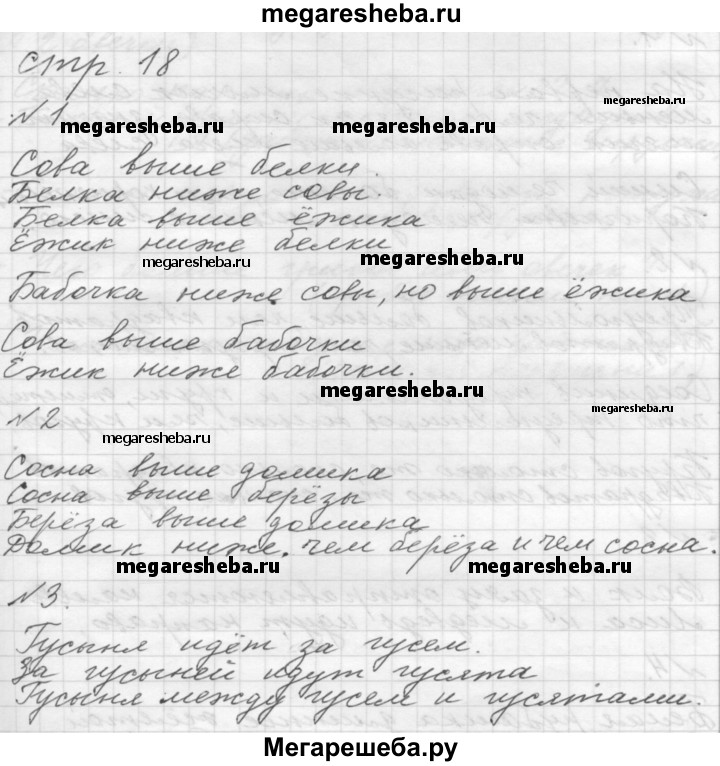 megaresheba.ru
стр. 18
№1
megaresheba.ru
megaresheba.ru
megaresheba.ru
Сова выше белки.
Белка ниже совы.
Белка выше ёжика
Ёжик ниже белки
megaresheba.ru
megaresheba.ru
Бабочка ниже совы, но выше ёжика
Сова выше бабочки
Ёжик ниже бабочки.
megaresheba.ru
№2
megaresheba.ru
megaresheba.ru
Сосна выше домика
Сосна выше берёзы
Берёза выше домика
Домик ниже, чем берёза и чем сосна.
megaresheba.ru
megaresheba.ru
№3.
Гусыня идёт за гусем.
За гусыней идут гусята
Гусыня между гусем и гусятами.
Мегарешеба.ру